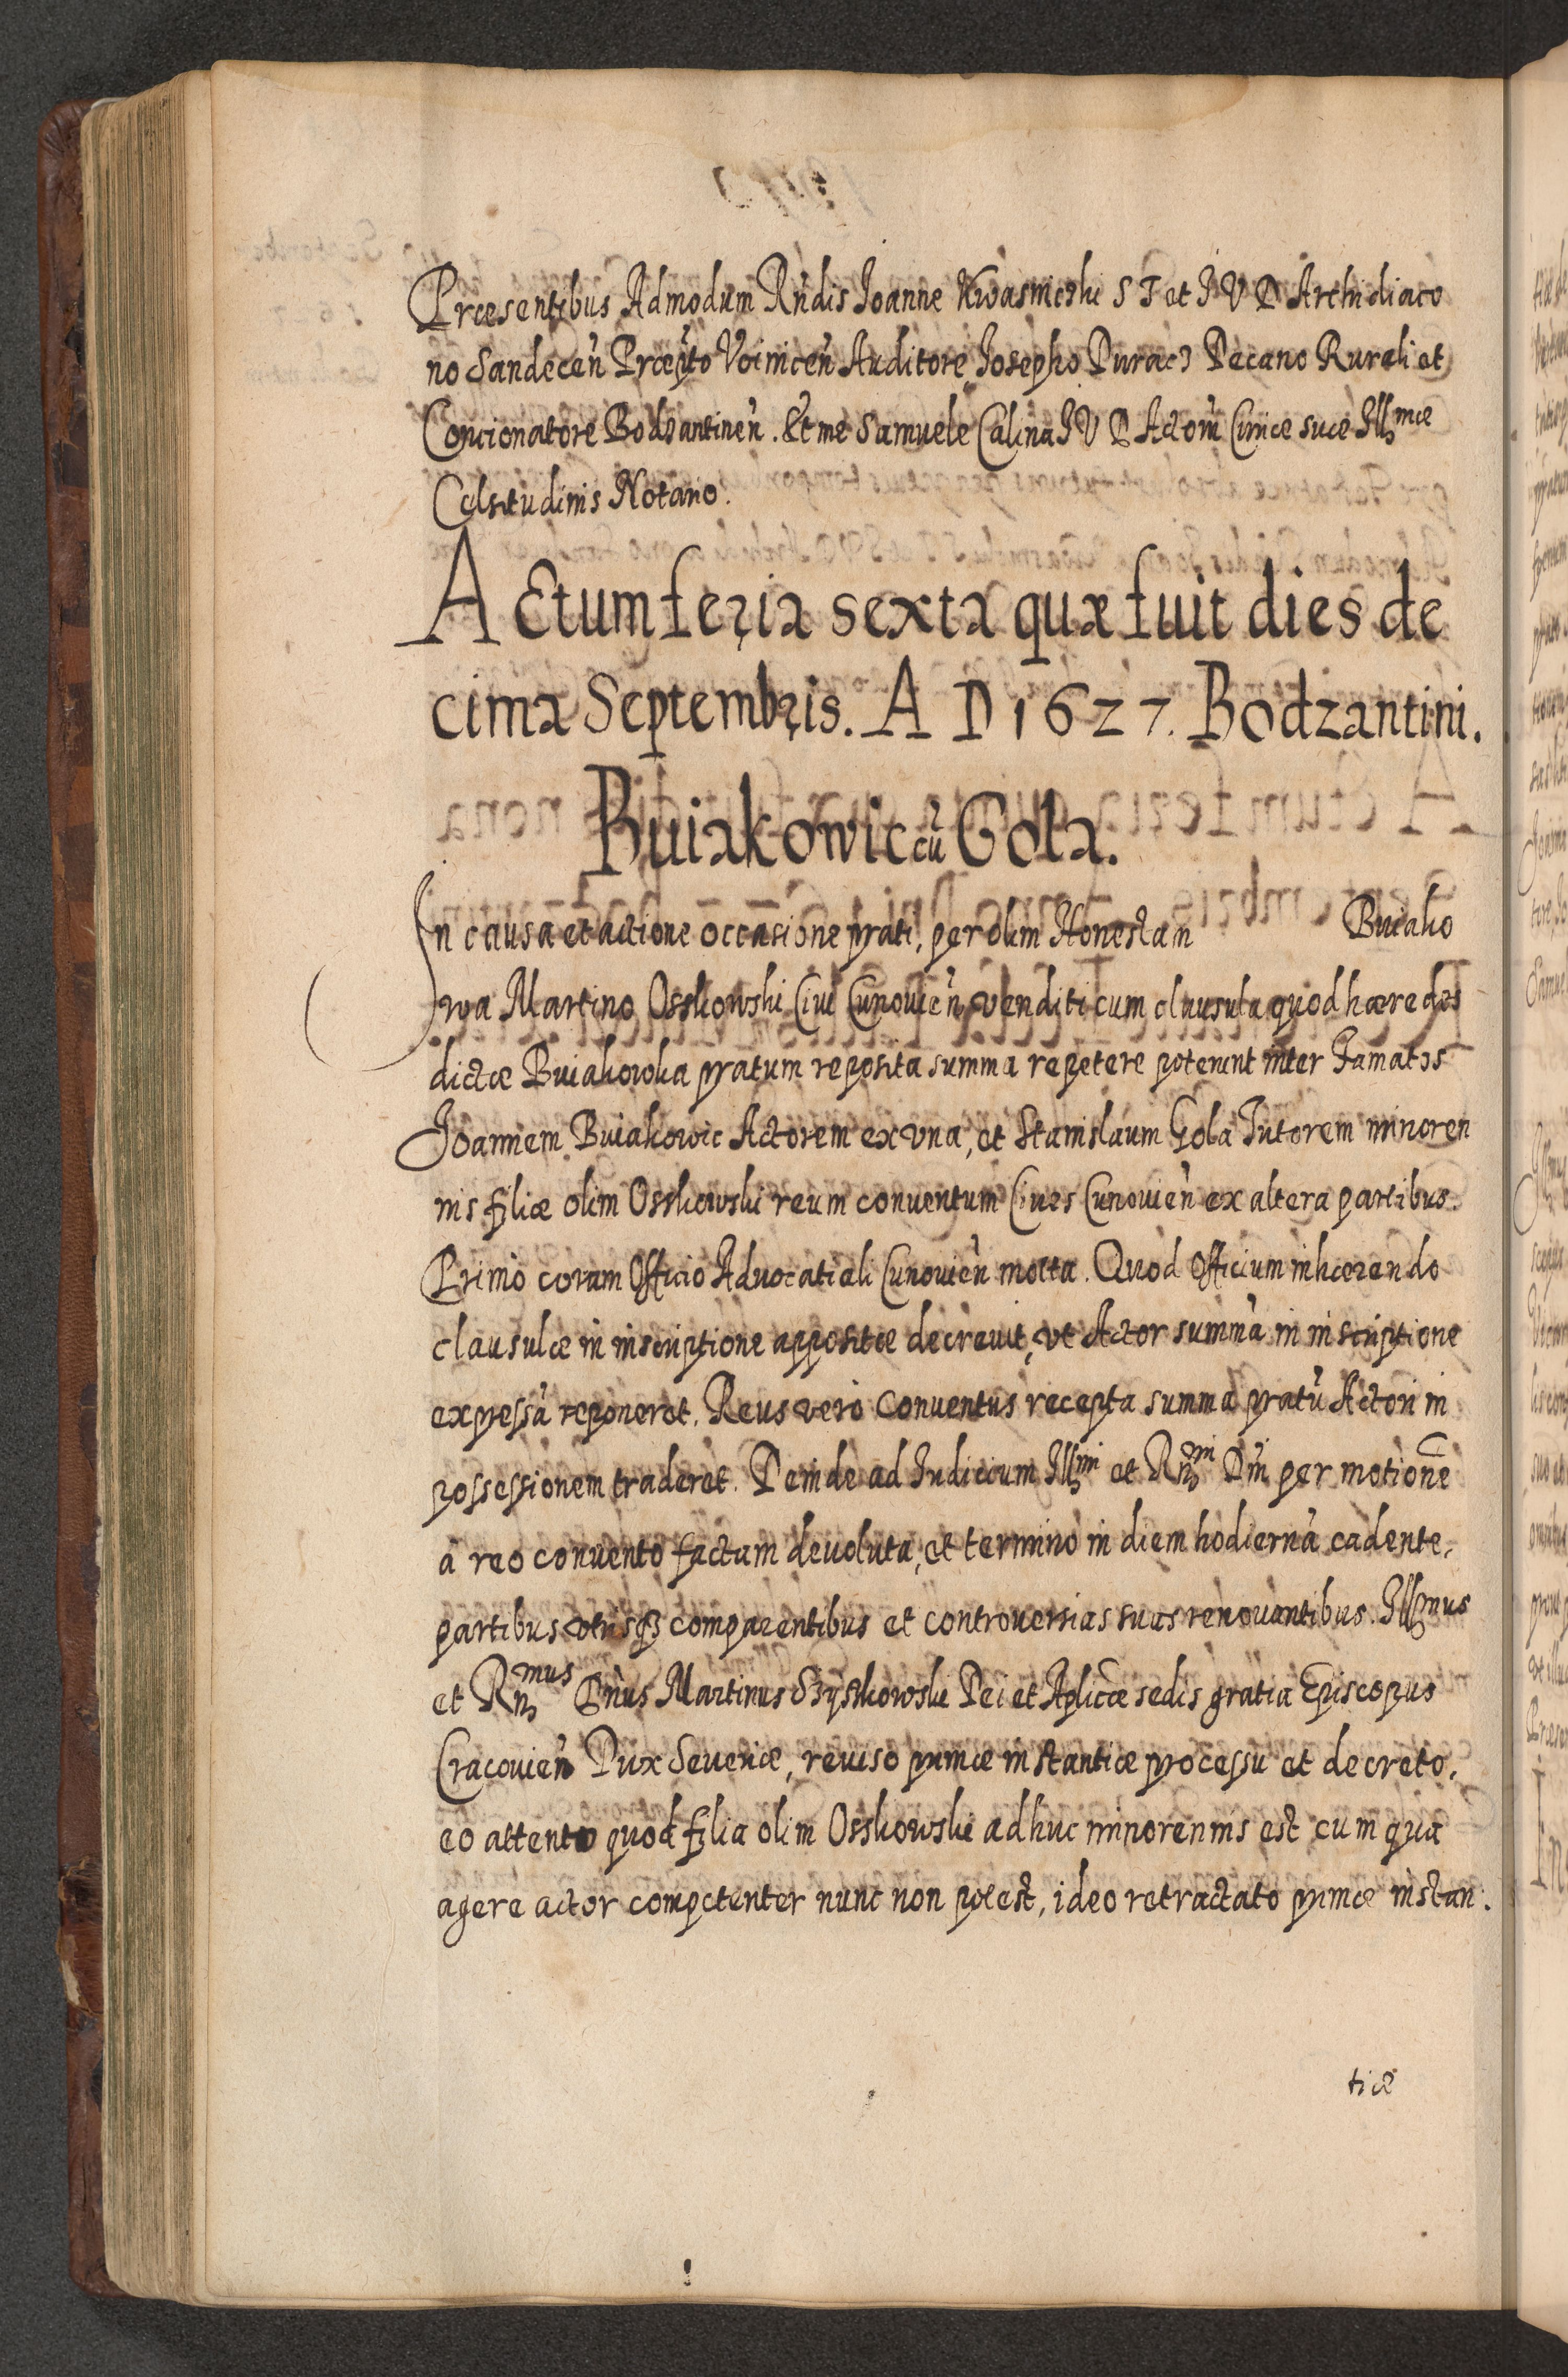 Præsentibus Admodum Rńdis Joanne Kwasnicski S T et J V D Archidiaco
no Sandeceń Præp̃to Voiniceń Auditore, Josepho Duracz Decano Rurali et
Concionatore Bodzantineń. Et me Samuele Calina J V D Actorũ Curiæ suæ Illmæ
Celsitudinis Notario.
Actum feria sexta quæ fuit dies de
cima Septembris. A D 1627. Bodzantini.
Buiakowic cũ Gola.
In causa et actione occasione prati, per olim Honestam Buiako
wa Martino Osskowski Ciui Cunouień venditi cum clausula quod hæredes
dictæ Buiakowska pratum reposita summa repetere poterint inter Famatos
Joannem Buiakowic Actorem ex vna, et Stanislaum Gola Tutorem minoren
nis filiæ olim Osskowski reum conuentum Ciues Cunouień ex altera partibus.
Primo coram Officio Aduocatiali Cunouień mota. Quod Officium inhærendo
clausulæ in inscriptione appositæ decreuit, vt Actor summã in inscriptione
expressã reponeret. Reus vero Conuentus recepta summa pratũ Actori in
possessionem traderet. Deinde ad Iudicium Illmi et Rmi Dńi per motionẽ
à reo conuento factam deuoluta, et termino in diem hodiernã cadente,
partibus vtrisq3 comparentibus et controuersias suas renouantibus. Illmus
et Rmus Dńus Martinus Szyszkowski Dei et Aplicæ sedis gratia Episcopus
Cracouień Dux Seueriæ, reuiso primæ instantiæ processu et decreto,
eo attento quod filia olim Osskowski adhuc minorennis est cum qua
agere actor competenter nunc non potest, ideo retractato primæ instan.
tiæ